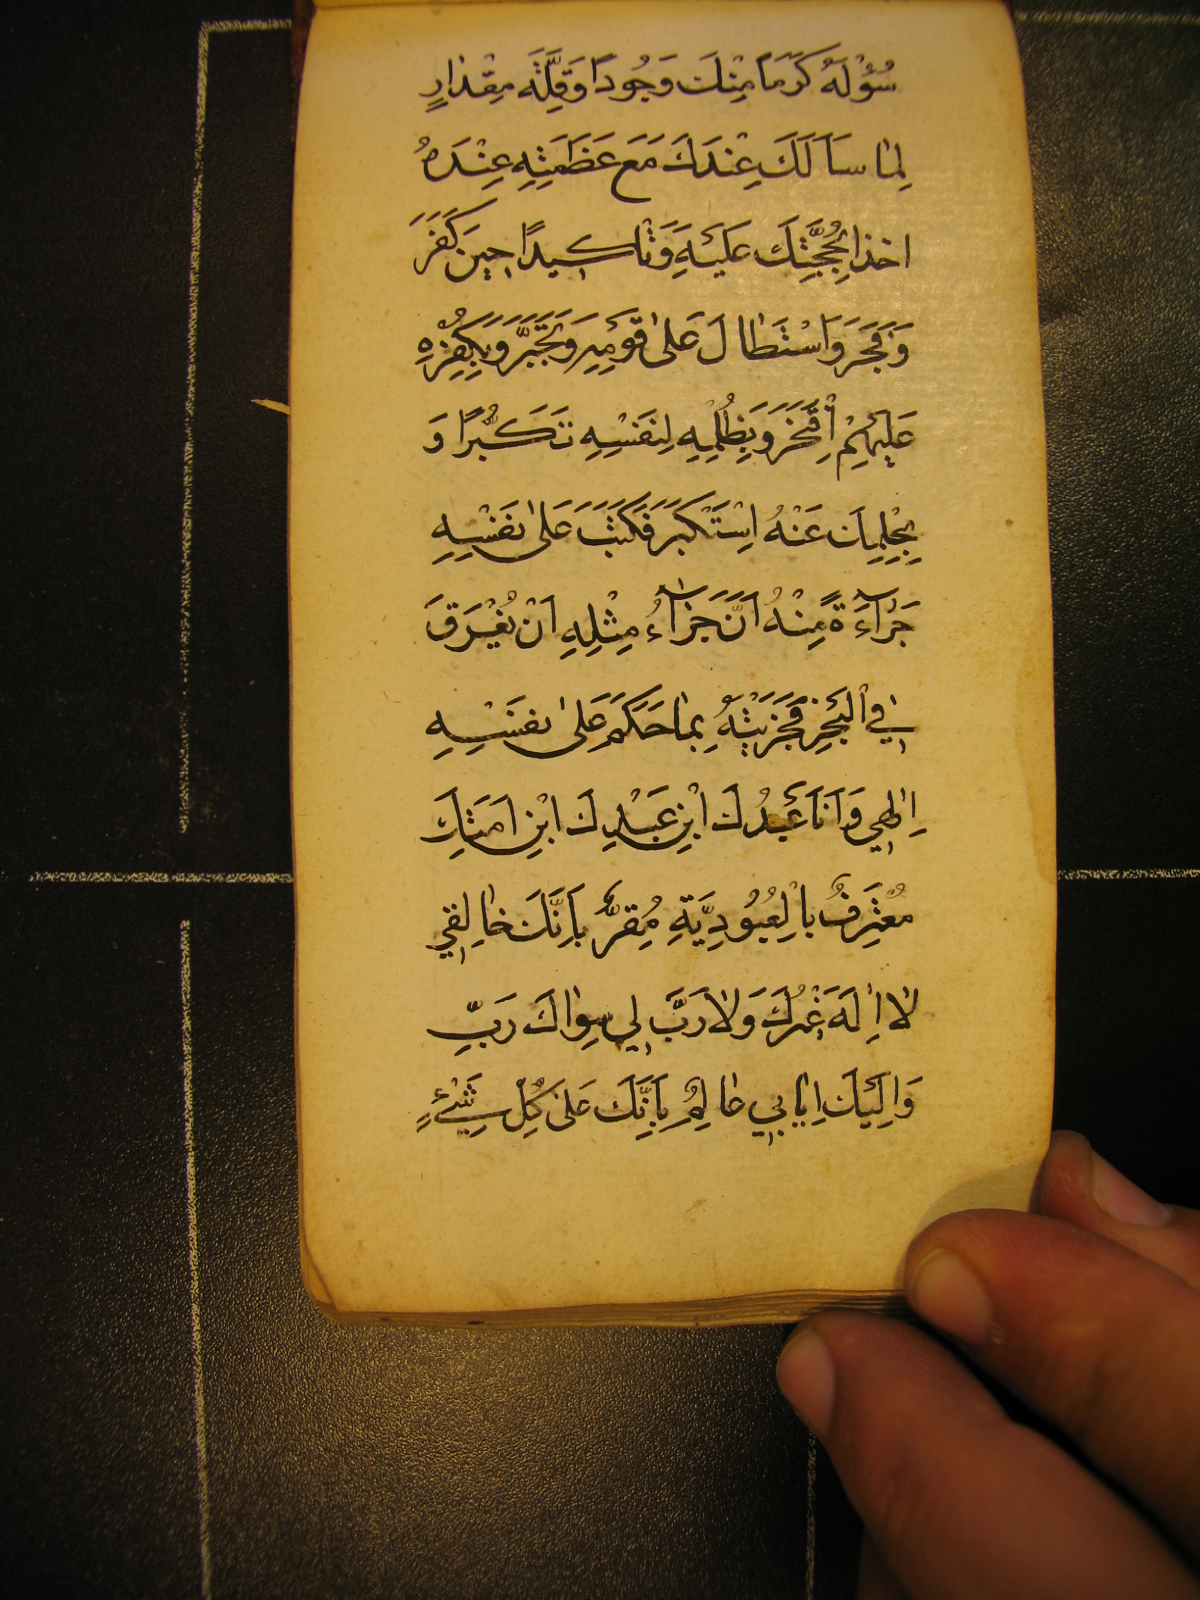 سُؤْلَهُ كَرَمًا مِنْكَ وَجُودًا وَقِلَّةَ مِقْدَارٍ
لِمَا سَاَلَكَ عِنْدَكَ مَعَ عَظَمَتِهِ عِنْدَهُ
اخذا بِحُجَّتِكَ عَلَيْهِ وَتَاكِيدًا حِينَ كَفَرَ
وَفَجَرَ وَاسْتَطَالَ عَلى قَوْمِهِ وَتَجَبَّرَ وَبِكُفْرِهِ
عَلَيْهِمْ اِفْتَخَرَ وَبِظُلْمِهِ لِنَفْسِهِ تَكَبُّرًا وَ
بِحِلْمِكَ عَنْهُ اسْتَكْبَرَ فَكَتَبَ عَلى نَفْسِهِ
جَرَآءَةً مِنْهُ اَنَّ جَزَآءُ مِثْلِهِ اَنْ يُغْرَقَ
فِي الْبَحْرِ فَجَزَيْتَهُ بِمَا حَكَمَ عَلى نفسِهِ
اِلهِي وَاَنَا عَبْدُكَ ابْنِ عَبْدِكَ ابْنِ اَمَتِكَ
مُعْتَرِفٌ بِالْعُبُودِيَّةِ مُقِرٌّ بِاَنَّكَ خَالِقِي
لا اِلَهَ غَيْرُكَ وَلا رَبَّ لِي سِوَاكَ رَبِّ
وَاِلَيْكَ اِيَابِي عَالِمٌ بِاَنَّكَ عَلى كُلِّ شَيْءٍ